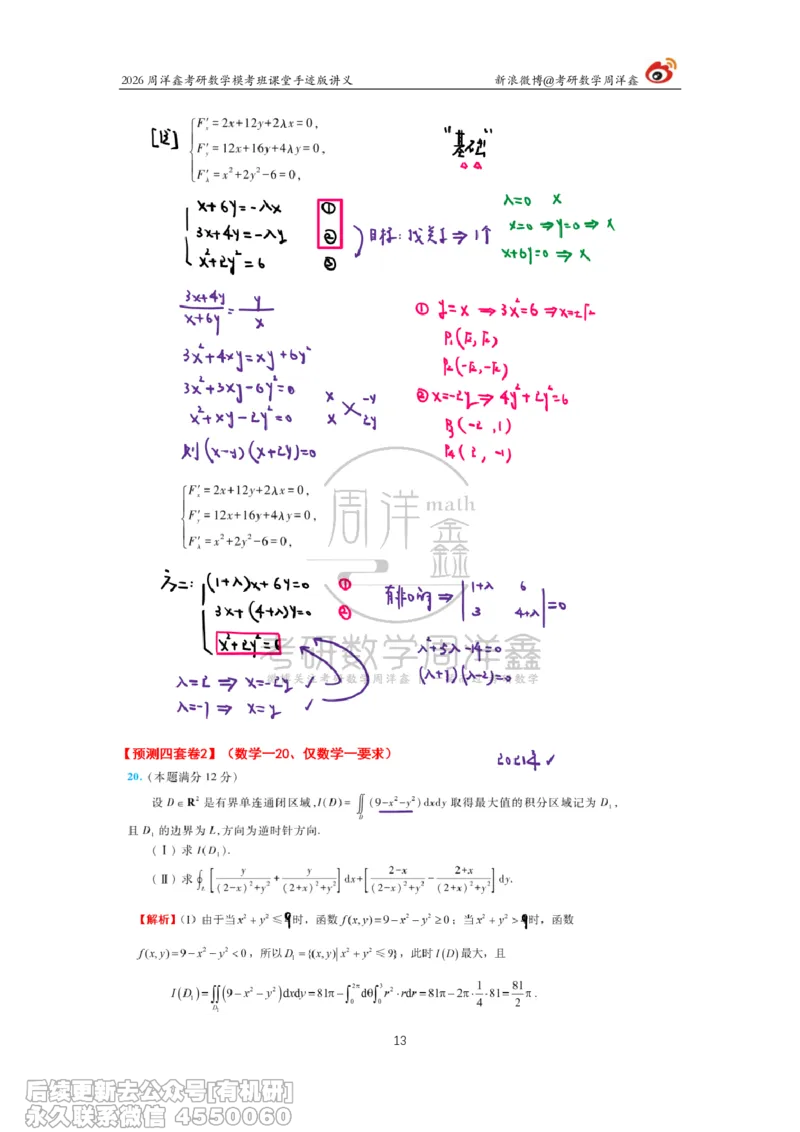 2026 周洋鑫考研数学模考班课堂手迹版讲义 新浪微博@考研数学周洋鑫
[注] F′x=2x+12y+2λx=0, "基础"
F′y=12x+16y+4λy=0,
F′λ=x²+2y²-6=0,
x+6y=-λx ①
3x+4y=-λy ② 目标:找关系⇒1个
x²+2y²=6 ③
λ=0 x
x=0⇒y=0⇒x
x+6y=0⇒x
(3x+4y)/(x+6y)=y/x
3x²+4xy=xy+6y²
3x²+3xy-6y²=0
x²+xy-2y²=0 x -y
x 2y
则(x-y)(x+2y)=0
① y=x⇒3x²=6⇒x=±√2
P₁(√2,√2)
P₂(-√2,-√2)
② x=-2y⇒4y²+2y²=6
P₃(-2,1)
P₄(2,-1)
F′x=2x+12y+2λx=0,
F′y=12x+16y+4λy=0,
F′λ=x²+2y²-6=0,
周洋鑫math
法二: (1+λ)x+6y=0 ①
3x+(4+λ)y=0 ②
x²+2y²=6
有非0解⇒ |1+λ 6|
|3 4+λ|=0
λ²+5λ-14=0
(λ+7)(λ-2)=0
考研数学周洋鑫
λ=2⇒x=-2y ✓
λ=-7⇒x=y ✓
【预测四套卷2】(数学一20、仅数学一要求) 2021年✓
20.(本题满分 12 分)
设 D∈R² 是有界单连通闭区域,I(D)=∬_D(9-x²-y²)dxdy 取得最大值的积分区域记为 D₁,
且 D₁ 的边界为 L,方向为逆时针方向.
(Ⅰ)求 I(D₁).
(Ⅱ)求∮_L[y/((2-x)²+y²)+y/((2+x)²+y²)]dx+[(2-x)/((2-x)²+y²)-(2+x)/((2+x)²+y²)]dy.
【解析】(I)由于当x²+y²≤9时,函数f(x,y)=9-x²-y²≥0;当x²+y²>9时,函数
f(x,y)=9-x²-y²<0,所以D₁={(x,y)|x²+y²≤9},此时I(D)最大,且
I(D₁)=∬_D₁(9-x²-y²)dxdy=81π-∫₀^2π dθ∫₀³ r²·rdr=81π-2π·1/4·81=81/2 π.
13
后续更新去公众号[有机研]
永久联系微信 4550060